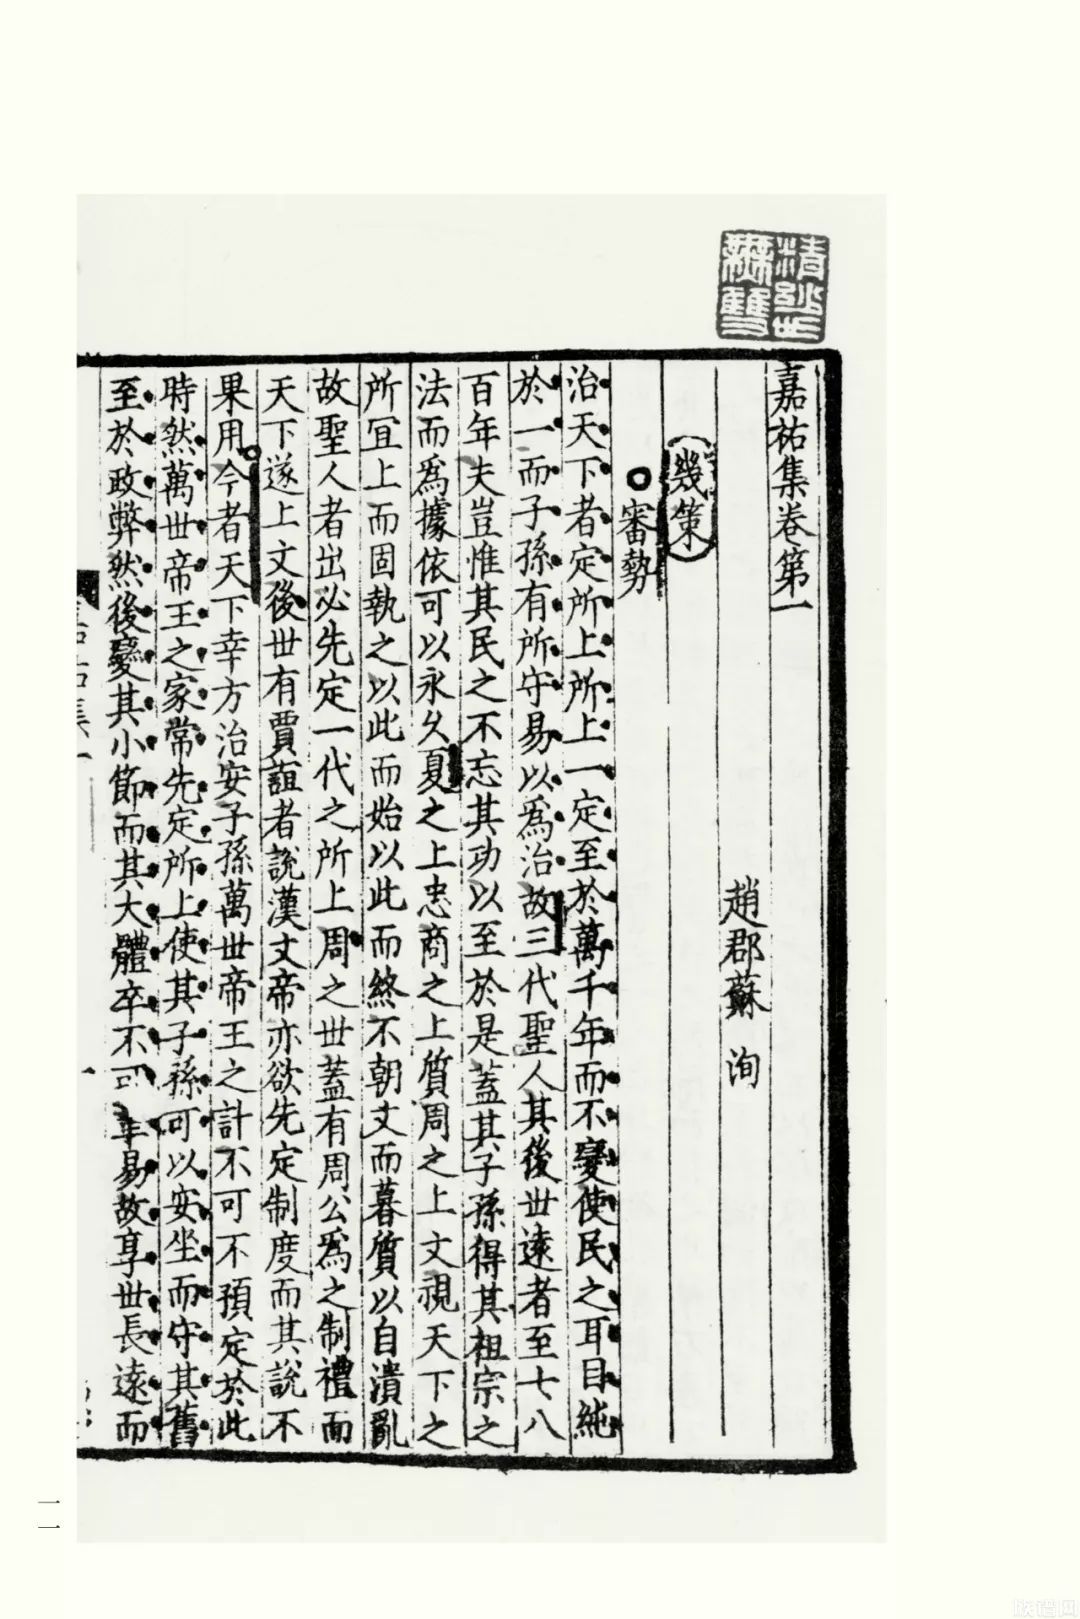 嘉祐集卷第一
趙郡蘇洵
幾策
審勢
治天下者定所上所上一定至於萬千年而不變使民之耳目純
於一而子孫有所守易以爲治故三代聖人其後世遠者至七八
百年夫豈惟其民之不忘其功以至於是蓋其子孫得其祖宗之
法而爲據依可以永久夏之上忠商之上質周之上文視天下之
所宜上而固執之以此而始以此而終不朝文而暮質以自潰亂
故聖人者出必先定一代之所上周之世蓋有周公爲之制禮而
天下遂上文後世有賈誼者說漢文帝亦欲先定制度而其說不
果用今者天下幸方治安子孫萬世帝王之計不可不預定於此
時然萬世帝王之家常先定所上使其子孫可以安坐而守其舊
至於政弊然後變其小節而其大體卒不可革易故享世長遠而
一一
族谱网